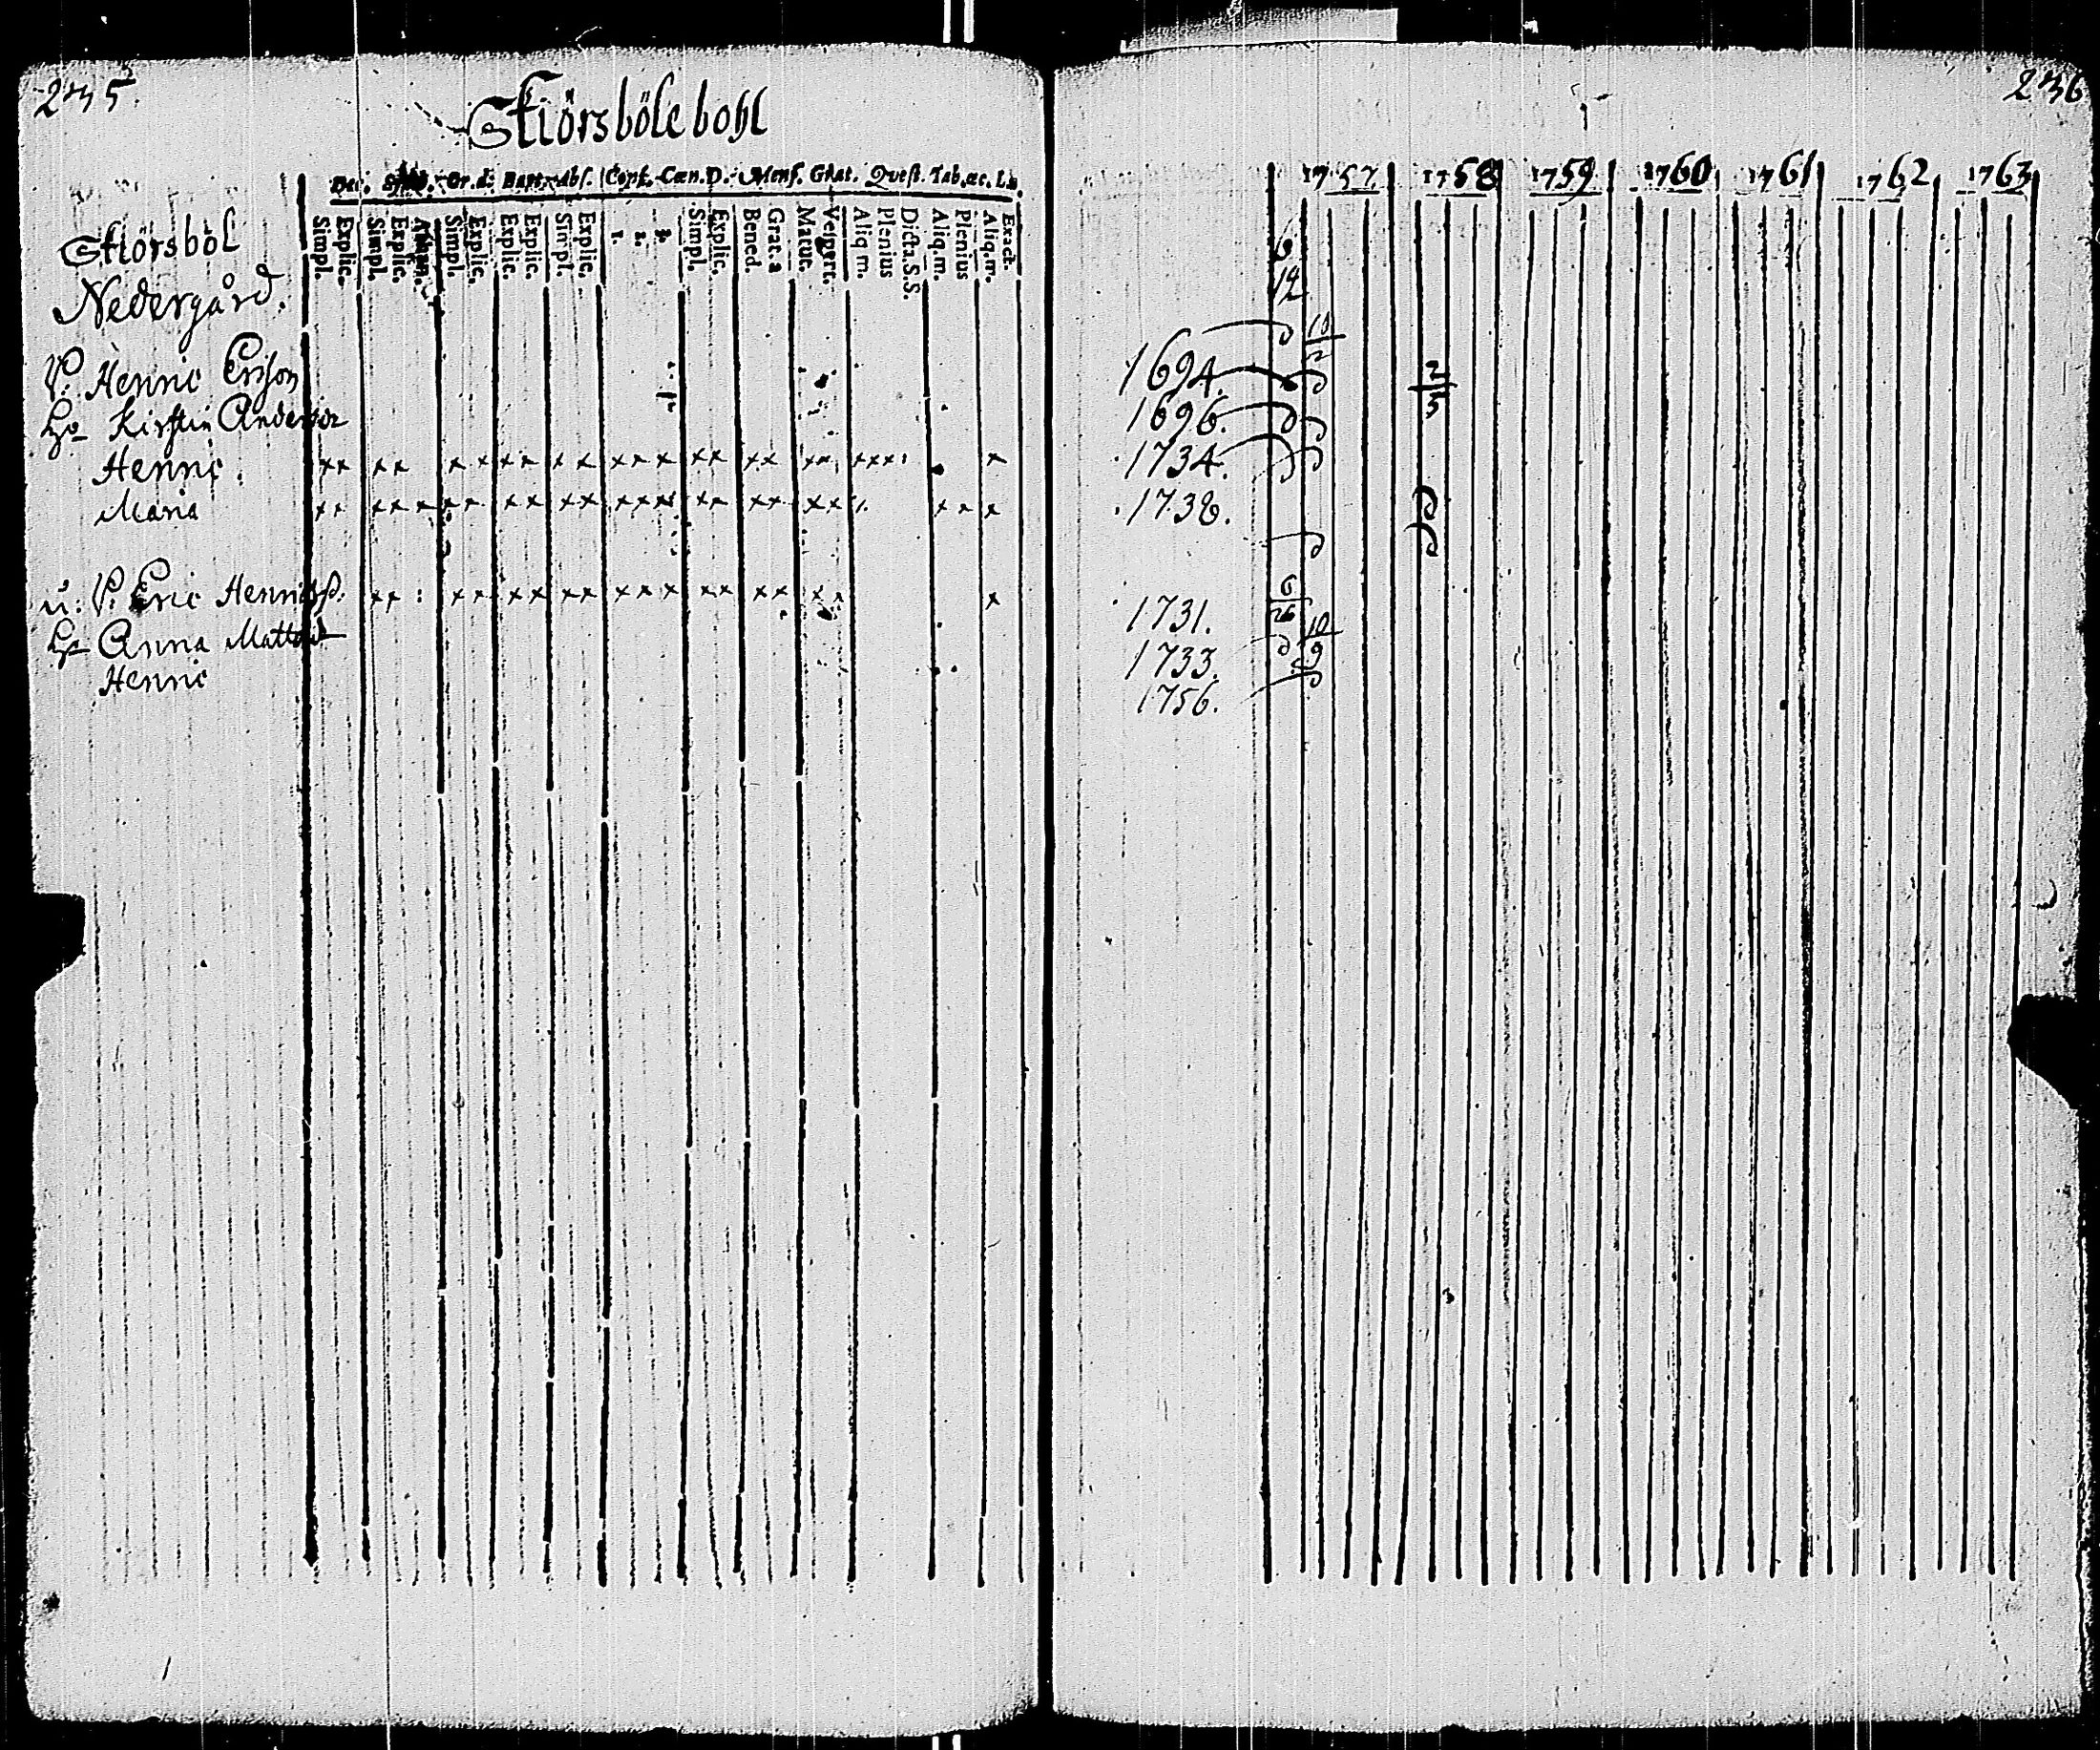 235.
Skiörsböle bohl
Dec. Symb. Or.d. Bapt. Abs. Conf. Cæn.D. Mens. Grat. Quest. Tab.æc. L.n.
Simpl. Explic. Simpl. Explic. Athan. Simpl. Explic. Explic. Explic. Simpl. Explic. 1. 2. 3. Simpl. Explic. Bened. Grat.a Matut. Vespert. Aliq.m. Plenius Dicta.S.S. Aliq.m. Plenius Aliq.m. Exact.
Skiörsböl
Nedergård.
P. Henric Ersson
Hu Kirstin Andersdr
Henric.
Maria
u: P. Eric Henricss.
Hu Anna Mattsd
Henric
236
1757 1758 1759 1760 1761 1762 1763
6
14
10
2
1694.
2
3
1696.
1734.
1738.
1731.
6
26
10
9
1733.
1756.